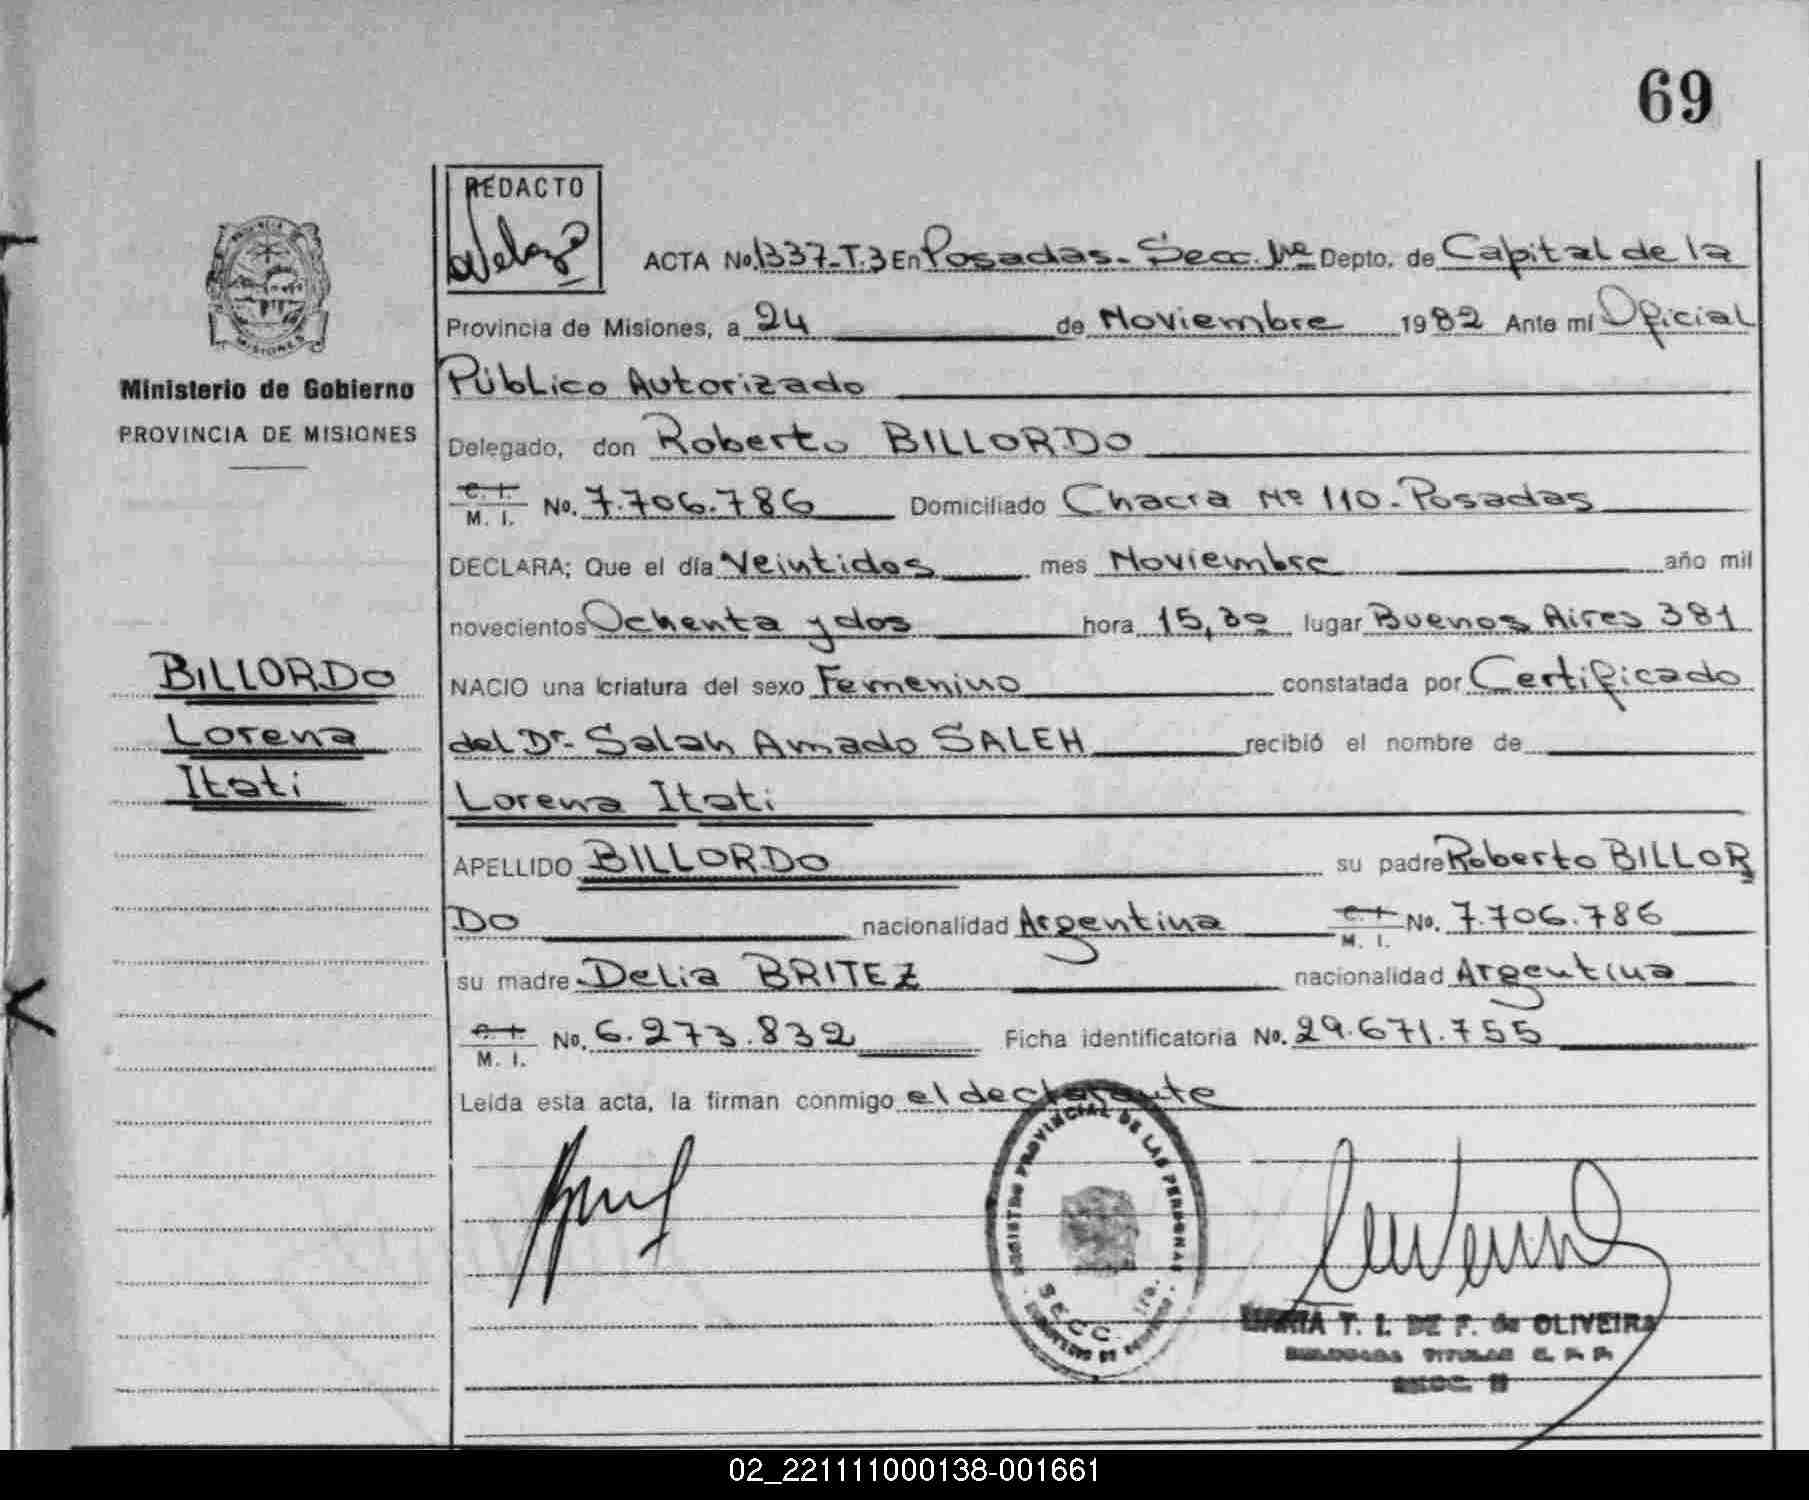 69
REDACTO
ACTA No. 1337-T.3 En Posadas - Secc. 1ra Depto. de Capital de la
Provincia de Misiones, a 24 de Noviembre 1982 Ante mí Oficial
Público Autorizado
Delegado, don Roberto BILLORDO
C. I. M. I. No. 7.706.786 Domiciliado Chacra Nº 110 - Posadas
DECLARA; Que el día Veintidos mes Noviembre año mil
novecientos Ochenta y dos hora 15,30 lugar Buenos Aires 381
NACIO una criatura del sexo Femenino constatada por Certificado
del Dr. Salah Amado SALEH recibió el nombre de
Lorena Itati
APELLIDO BILLORDO su padre Roberto BILLOR
DO nacionalidad Argentina C. I. M. I. No. 7.706.786
su madre Delia BRITEZ nacionalidad Argentina
C. I. M. I. No. 6.273.832 Ficha identificatoria No. 29.671.755
Leída esta acta, la firman conmigo el declarante
MISIONES
Ministerio de Gobierno
PROVINCIA DE MISIONES
BILLORDO
Lorena
Itati
REGISTRO PROVINCIAL DE LAS PERSONAS
SECC. 1ra.
T. I. DE F. de OLIVEIRA
TITULAR
02_221111000138-001661